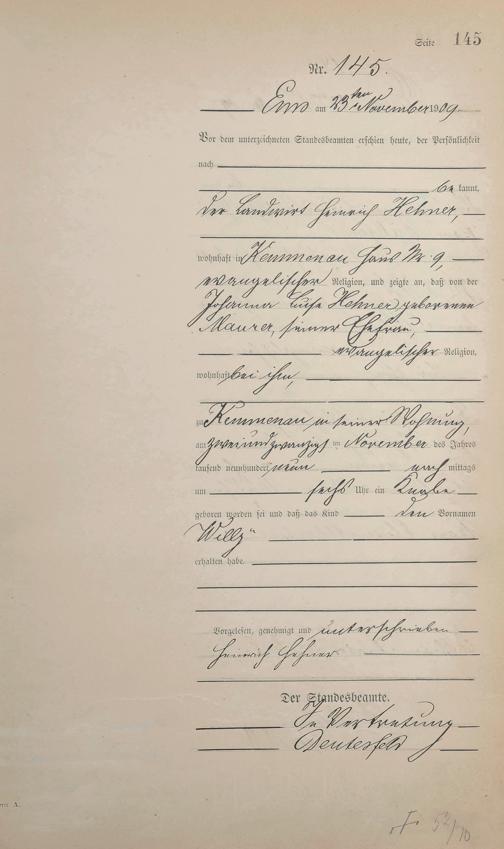 Seite 145
Nr. 145.
Ems am 23ten November 1909
Vor dem unterzeichneten Standesbeamten erschien heute, der Persönlichkeit
nach
bekannt,
der Landwirt Heinrich Hehner,
wohnhaft in Kemmenau Haus Nr. 9,
evangelischer Religion, und zeigte an, daß von der
Johanna Luise Hehner geborenen
Maurer, seiner Ehefrau,
evangelischer Religion,
wohnhaft bei ihm,
zu Kemmenau in seiner Wohnung,
am zweiundzwanzigsten November des Jahres
tausend neunhundert neun nachmittags
um sechs Uhr ein Knabe
geboren worden sei und daß das Kind den Vornamen
"Willy"
erhalten habe.
Vorgelesen, genehmigt und unterschrieben
Heinrich Hehner
Der Standesbeamte.
In Vertretung
A.